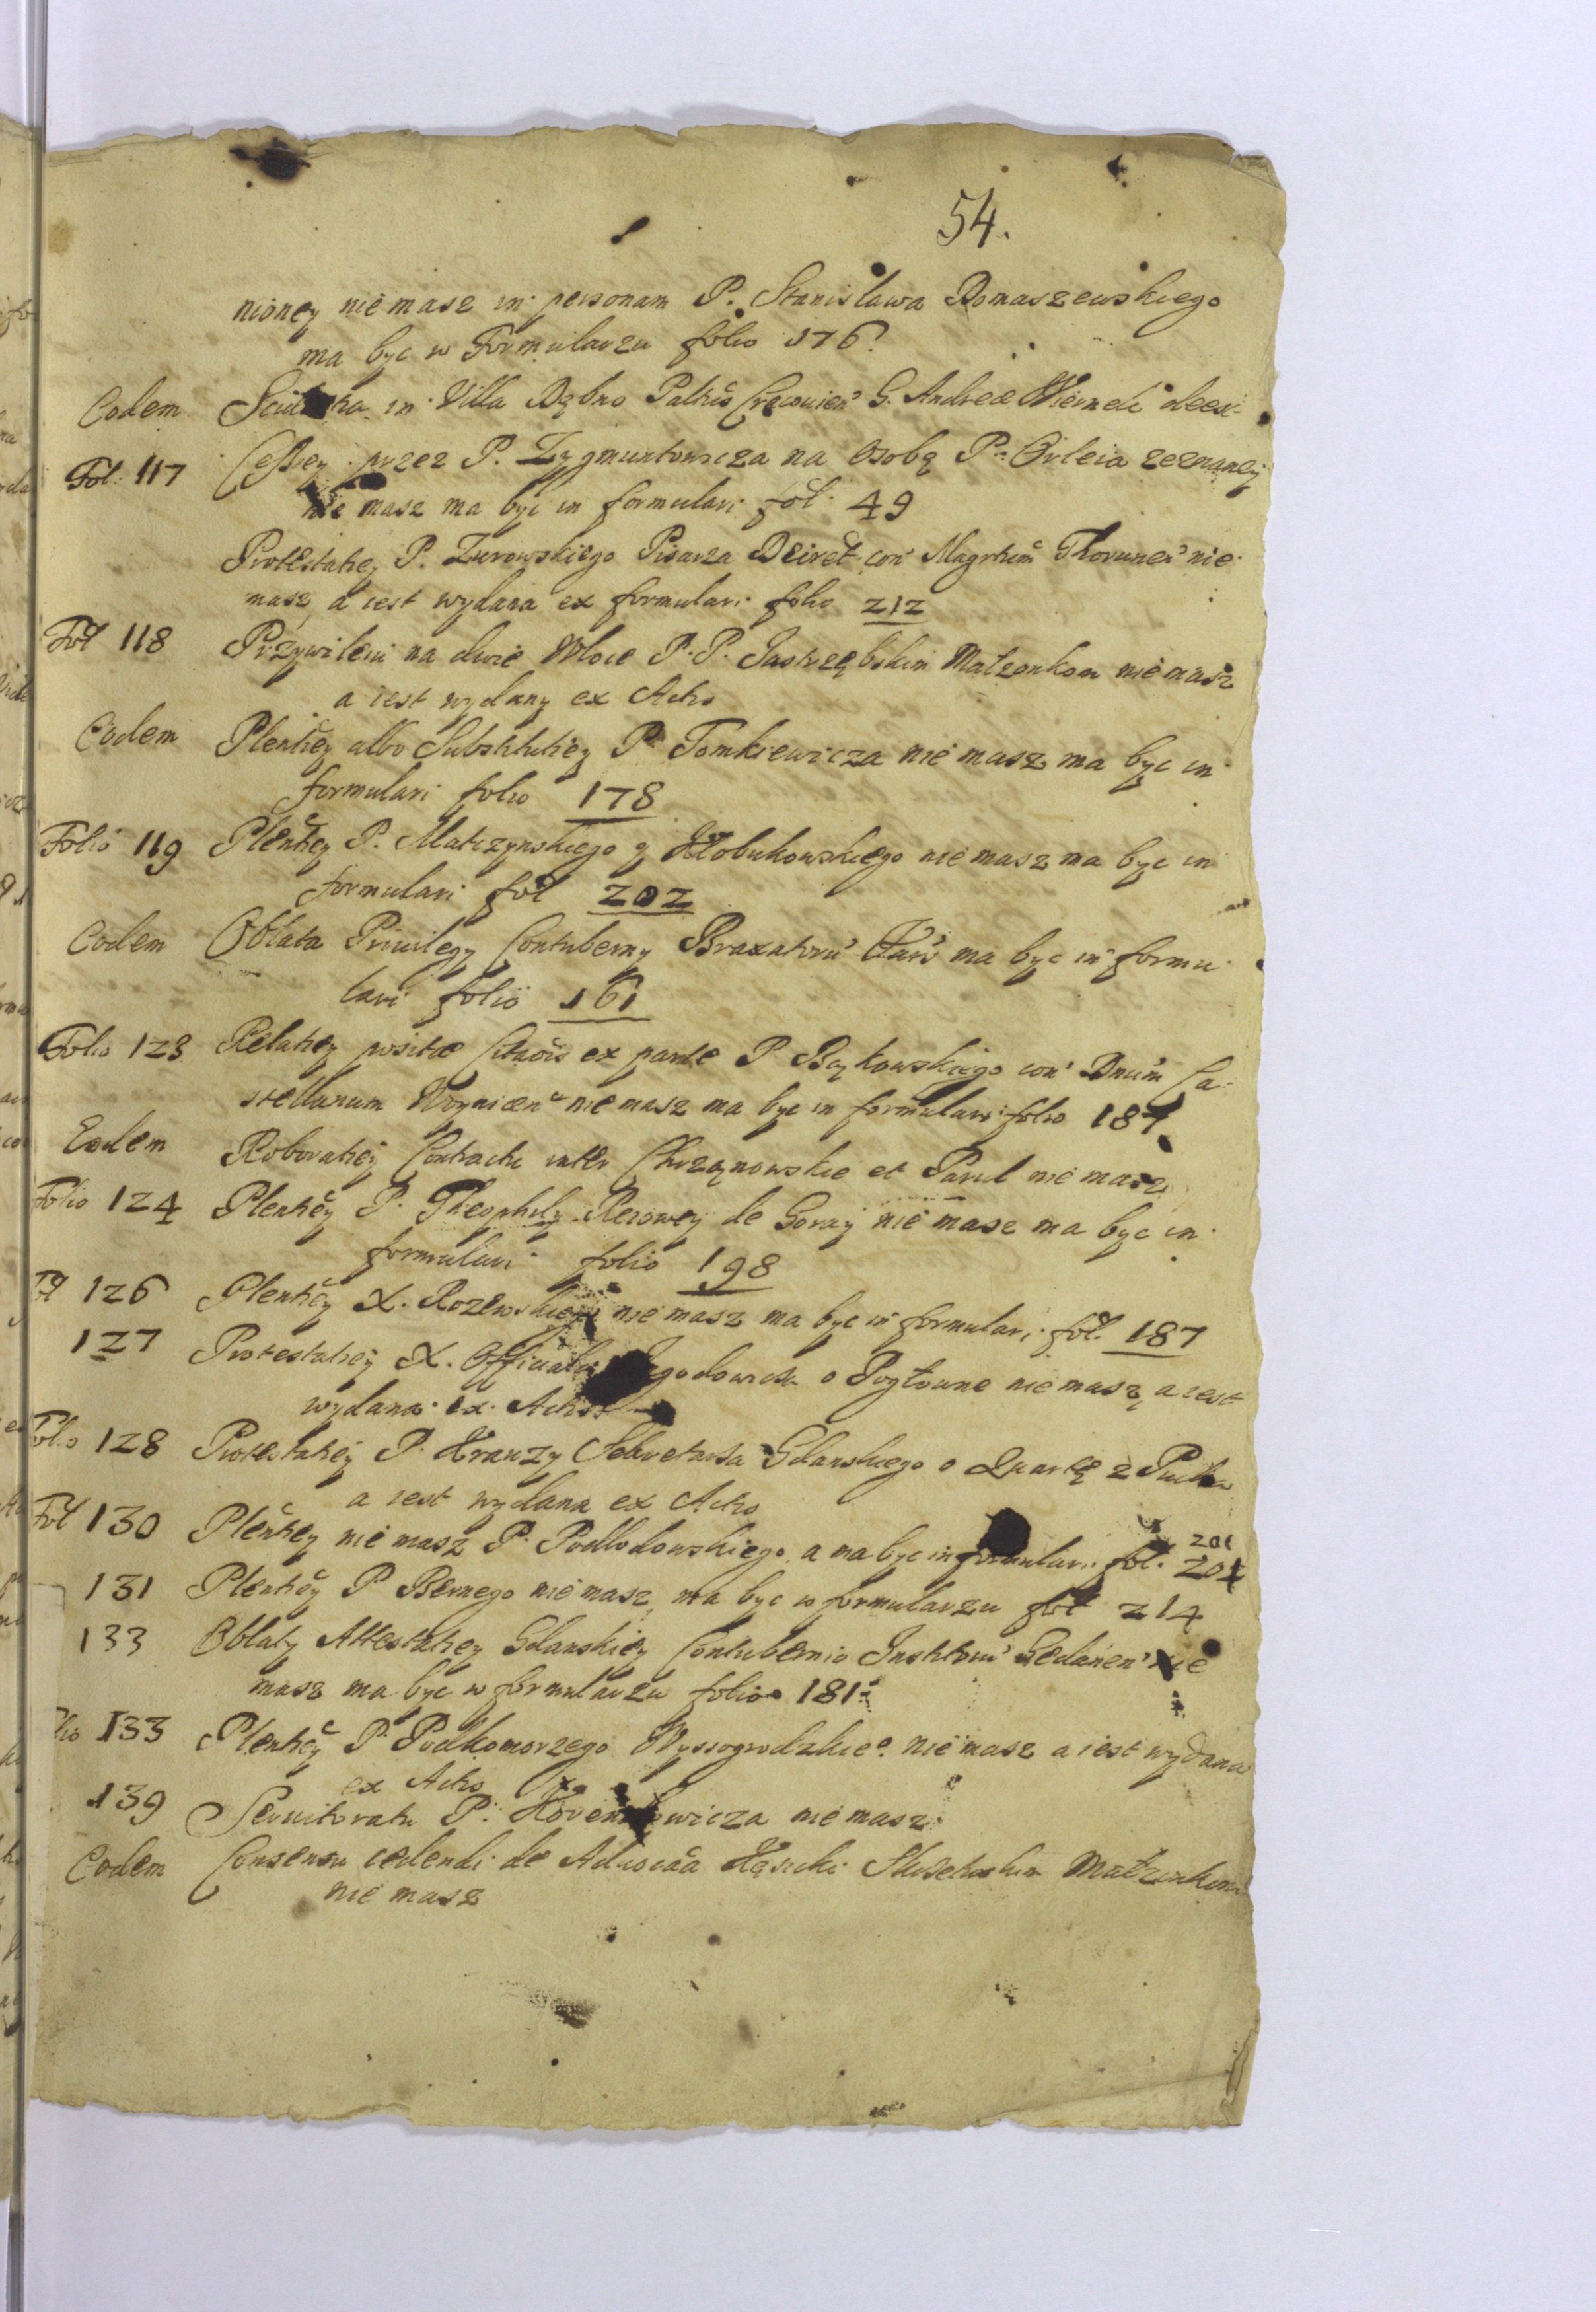 54.
nioney niemasz in personam P. Stanisława Domaszewskiego
ma byc w Formularzu folio 176.
Eodem in Villa Dębno Palhis Cracouien' G. Andreae
Fol: 117 Cessey przez P. Zygmuntowicza na Osobę Pa Orleia zeznaney
nie masz ma byc in formulari fol. 49
Protestatiey P. Zurowskiego Pisarza Decret. con' Magrtum Thorunen' nie
masz a iest wydana ex formulari folio 212
Fol 118 Przywileiu na dwie Włoce P.P. Jastrzębskim Małzonkom nie masz
a iest wydany ex Actis
Eodem Plentiey albo Substitutiey P. Tomkiewicza nie masz ma byc in
formulari folio 178
Folio 119 Plentiey P. Matczynskiego y Kłobukowskiego nie masz ma byc in
formulari fol 202
Eodem Oblata Privilegy Contuberny Braxatoru' ma byc in formu
lari folio 161
Folio 123 Relatiey positae Citaois ex parte P Bąkowskiego con' Dnum Ca-
stellanum Woynicen' nie masz ma byc in formulari folio 187
Eodem Roboratiey Contractu inter Chrząnowskie et nie masz
Folio 124 Plentiey P. Theophily de Goray nie masz ma byc in
formulari folio 198
Fol 126 Plentiey X. Rozewskiego nie masz ma byc in formulari fol. 187
127 Protestatiey X. Officiala o Pogłowne nie masz a iest
wydana ex Actis
Folio 128 Protestatiey P. Kranzy Sekretarza Gdanskiego o Quartę z Pucka
a iest wydana ex Actis
Fol 130 Plentiey nie masz P. Podlodowskiego a ma byc in formulari fol. 204 201
131 Plentiey P Bernego nie masz ma byc w formularzu fol 214
133 Oblaty Attestatiey Gdanskiey Contubernio Institoru' Gedanen' nie
masz ma byc w formularzu folio 181
Folio 133 Plentiey P. Podkomorzego Wyssogrodzkieo nie masz a iest wydana
ex Actis
139 Seruitoratu P. nie masz
Eodem Consensu cedendi de Małzonkom
nie masz